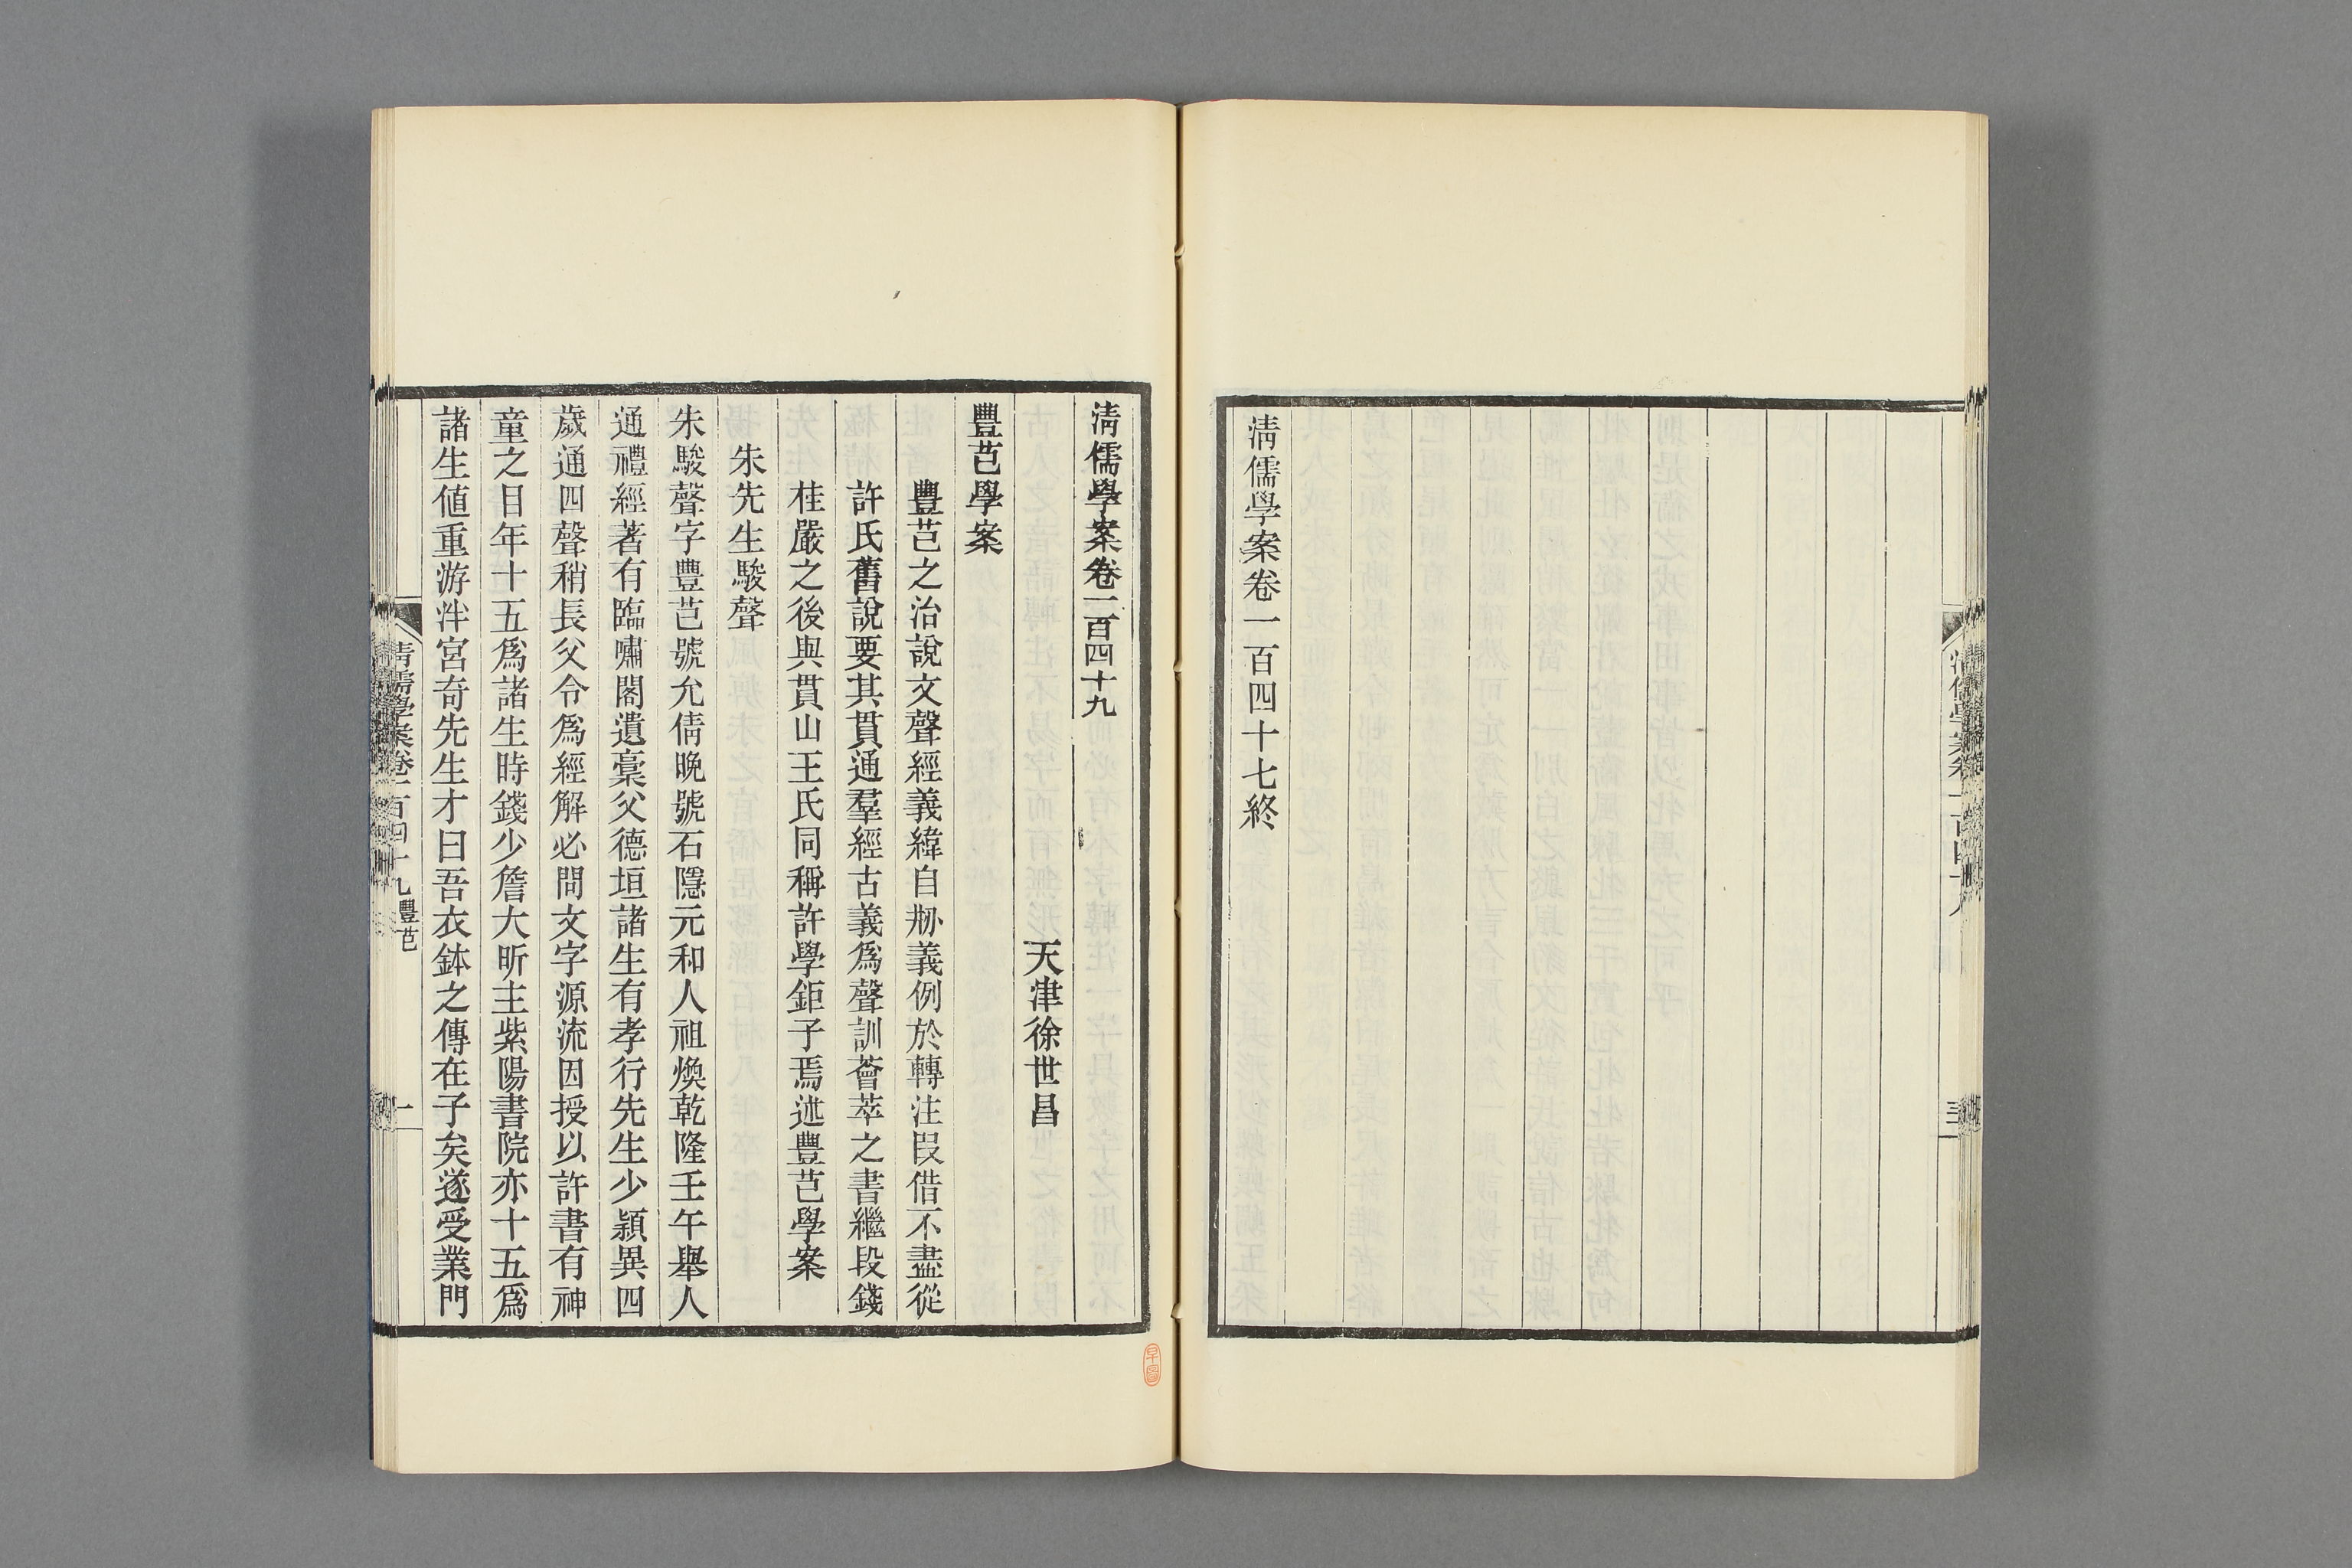 清儒學案卷一百四十七終
清儒學案卷一百四十九
天津徐世昌
豐芑學案
豐芑之治說文聲經義緯自剏義例於轉注叚借不盡從
許氏舊說要其貫通羣經古義爲聲訓薈萃之書繼段錢
桂嚴之後與貫山王氏同稱許學鉅子焉述豐芑學案
朱先生駿聲
朱駿聲字豐芑號允倩晚號石隱元和人祖煥乾隆壬午舉人
通禮經著有臨嘯閣遺稾父德垣諸生有孝行先生少穎異四
歲通四聲稍長父令爲經解必問文字源流因授以許書有神
童之目年十五爲諸生時錢少詹大昕主紫陽書院亦十五爲
諸生値重游泮宮奇先生才曰吾衣鉢之傳在子矣遂受業門
清儒學案卷一百四十九 豐芑
一